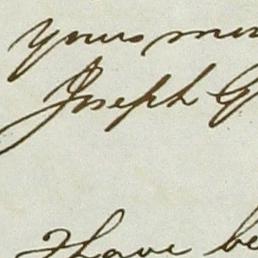 Yours
Joseph G
I have be